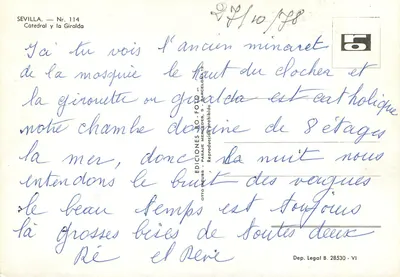 SEVILLA. — Nr. 114
Catedral y la Giralda
27/10/78
Ici tu vois l'ancien minaret
de la mosquée le haut du clocher et
la girouette ou giralda est catholique
notre chambre domine de 8 étages
la mer, donc la nuit nous
entendons le bruit des vagues
le beau temps est toujours
là grosses bises de toutes deux
et
EDICIONES -RO - FOTO
Dep. Legal B. 28530 - VI